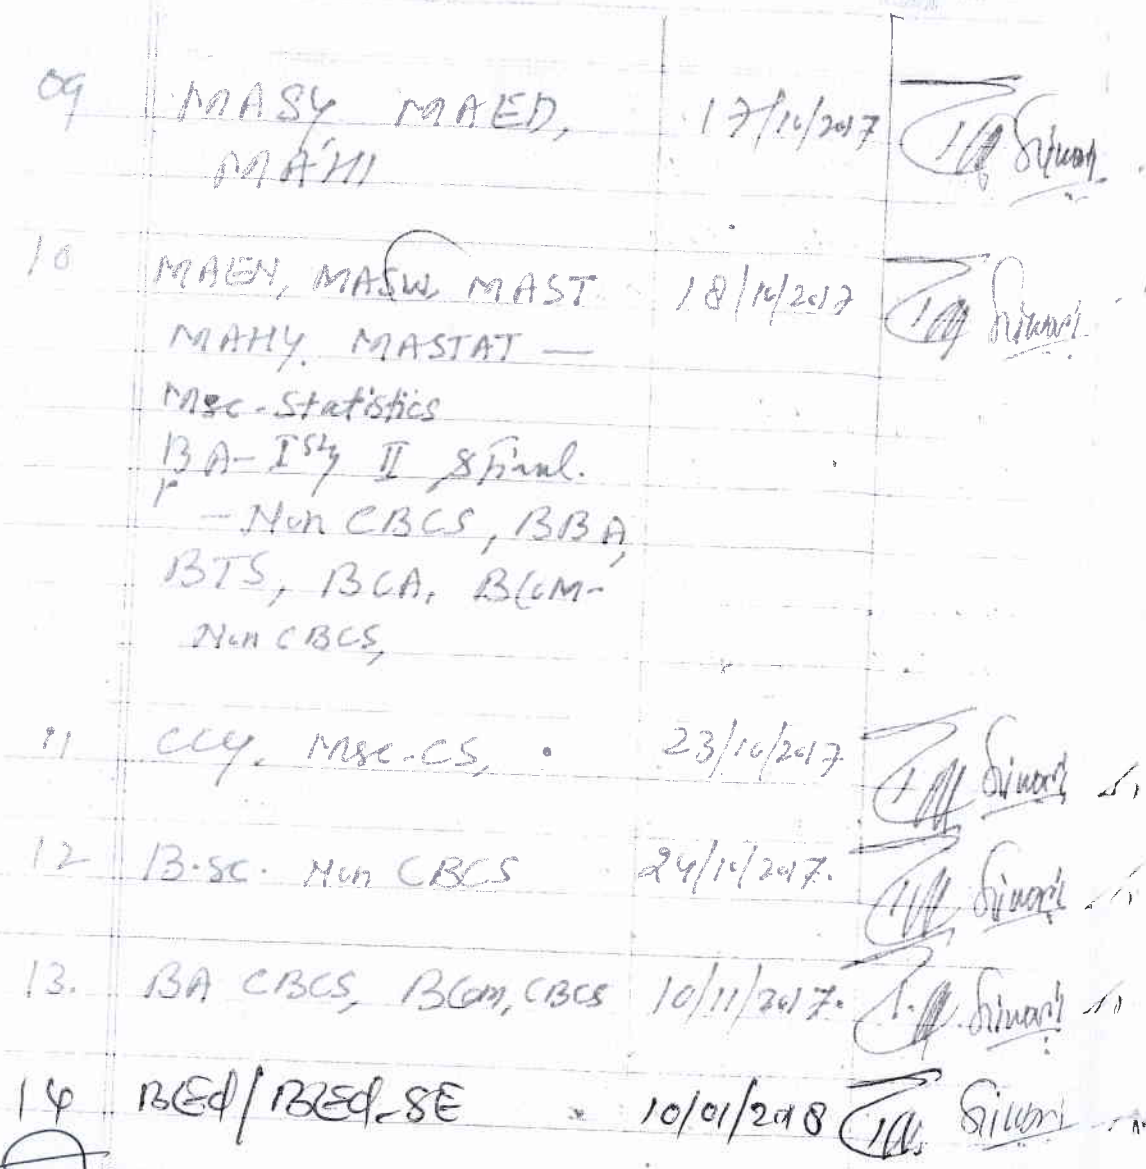 09 MASY MAED, 17/10/2017
MAHI
10 MAEN, MASW MAST 18/10/2017
MAHY. MASTAT —
Msc-Statistics
BA-Ist, II & Final.
- Non CBCS, BBA,
BTS, BCA, BCOM-
Non CBCS,
11 CCY. Msc-CS, 23/10/2017
12 B.sc. Non CBCS 24/10/2017.
13. BA CBCS, BCom, CBCS 10/11/2017.
14 BEd/BEd-SE 10/01/2018